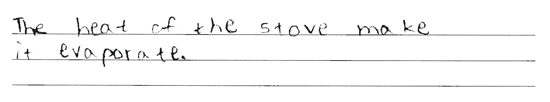 The heat of the stove make
it evaporate.